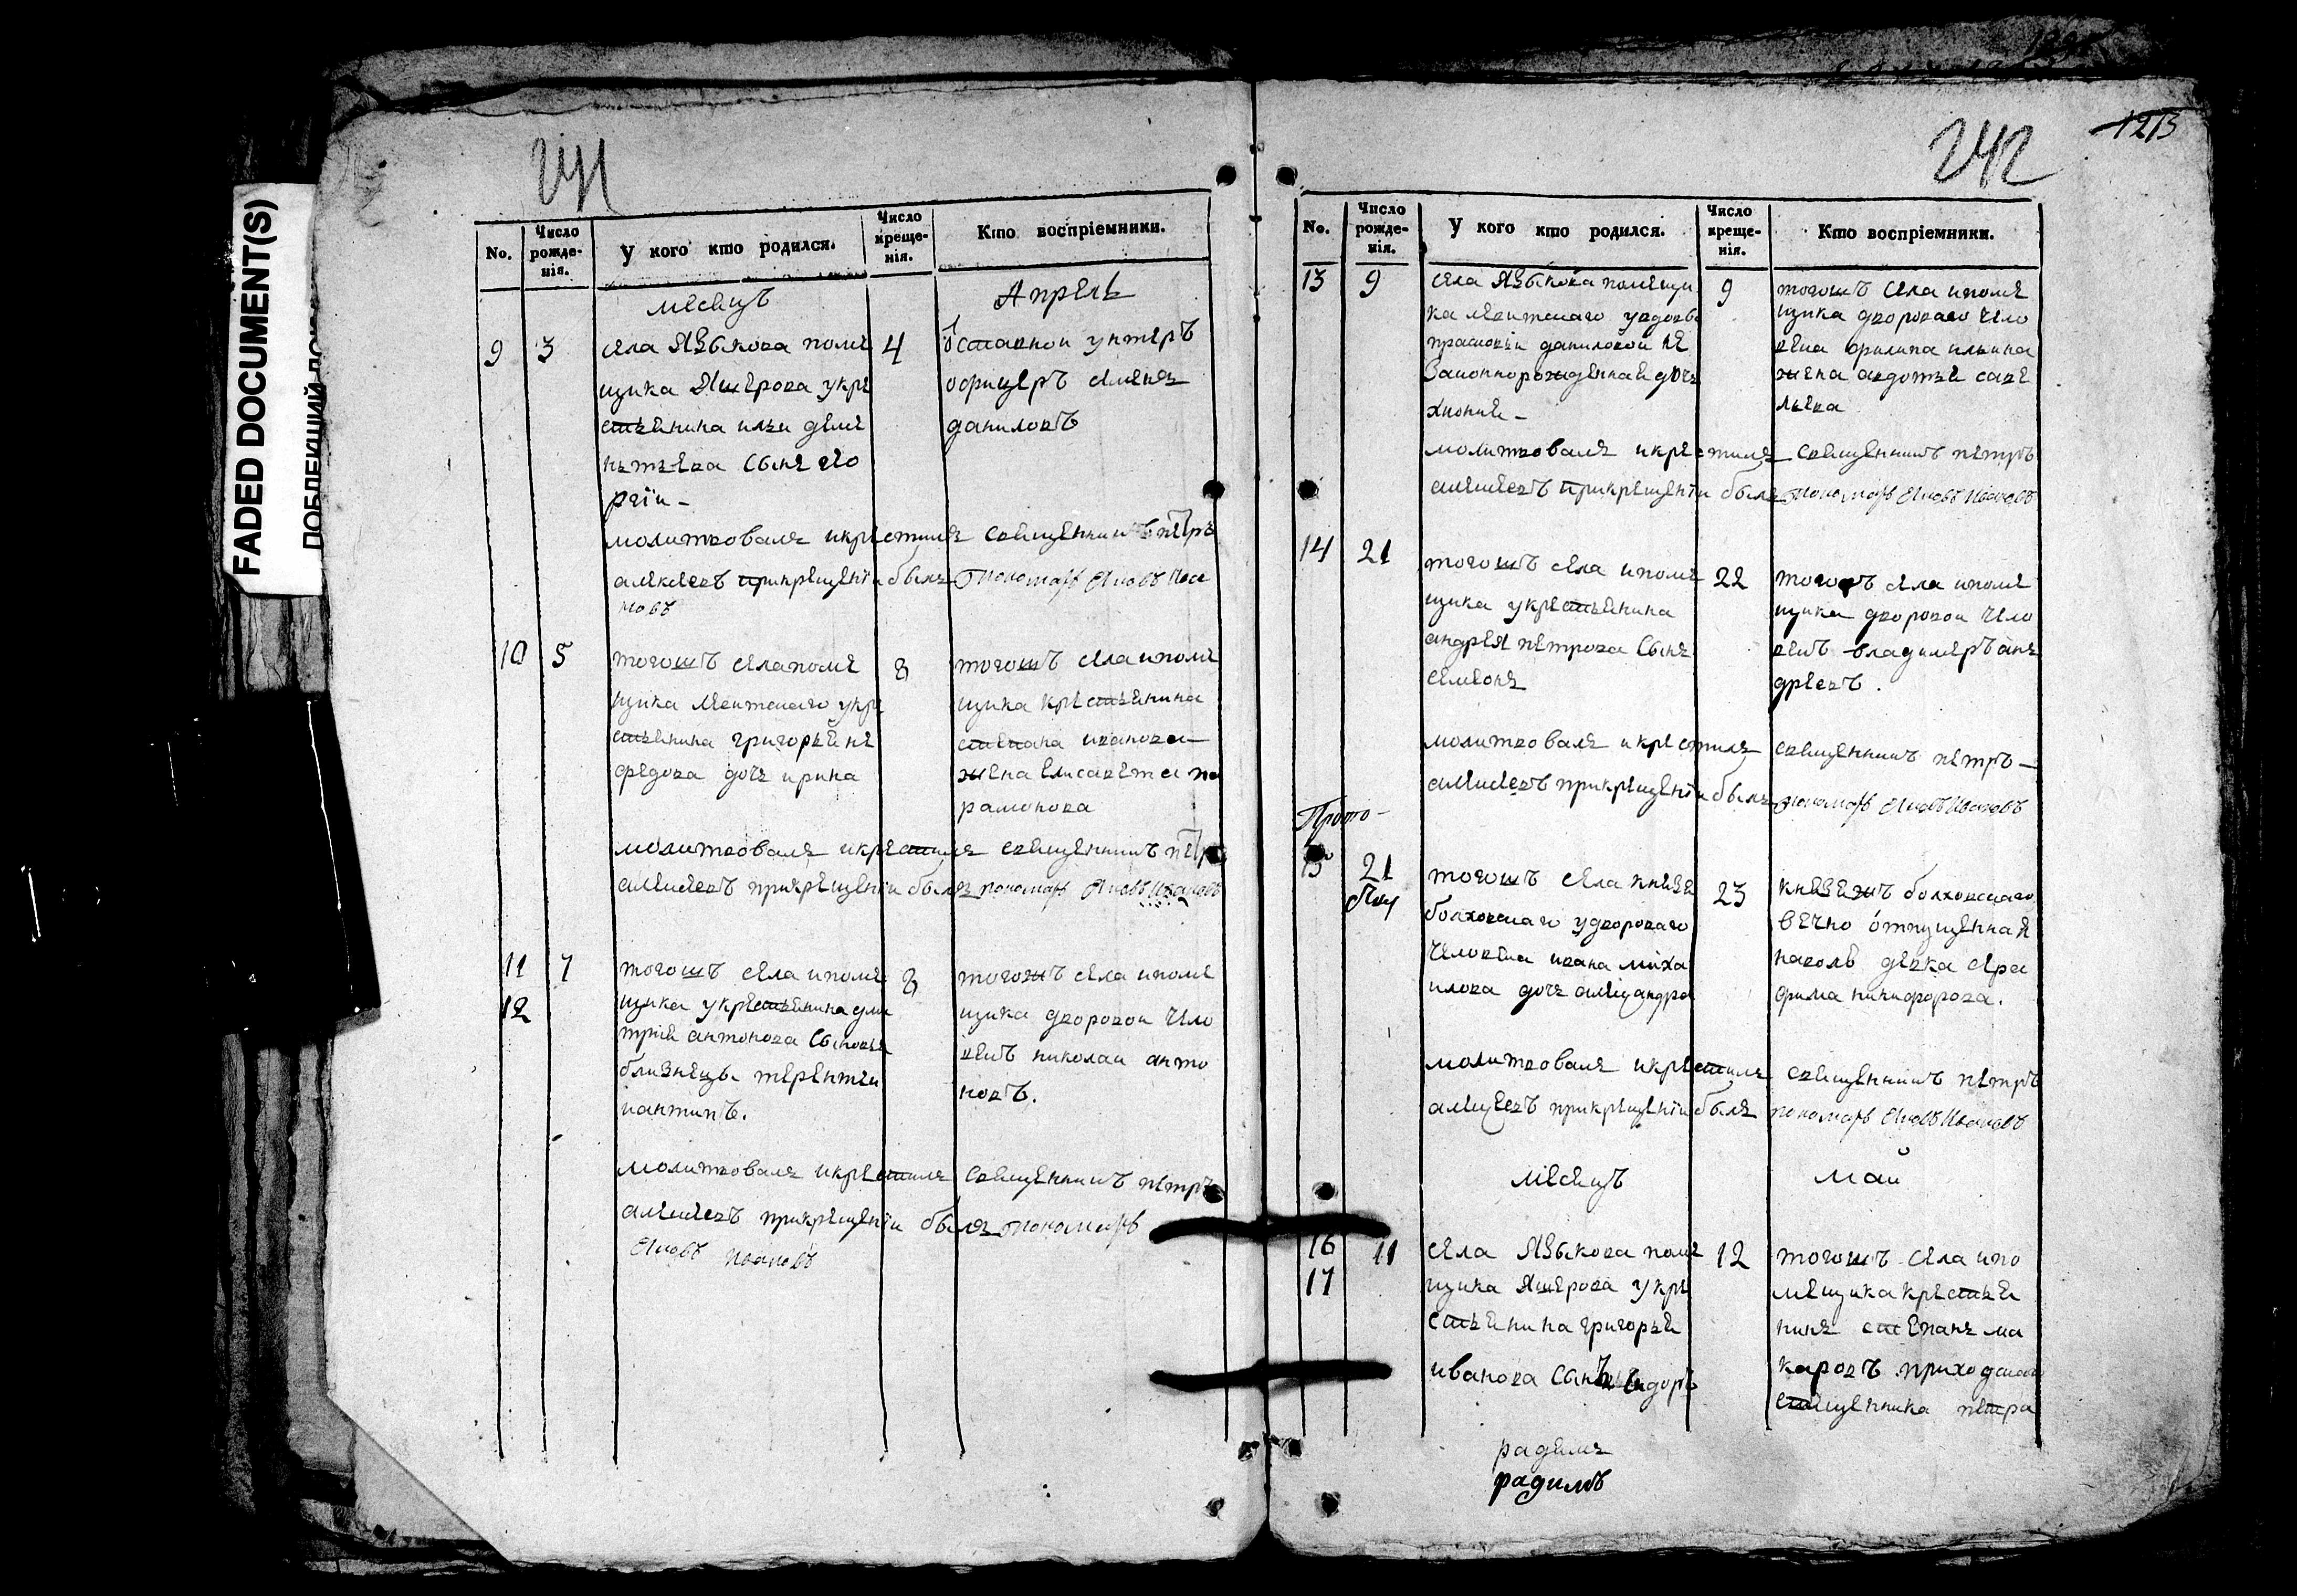 FADED DOCUMENT(S)
241
No.
Число рожде-нія.
У кого кто родился.
Число креще-нія.
Кто воспріемники.
месецъ
Апрель
9 3
села Языкова поме
щика Яшерова укре
стьенина ильи деме
ньтьева сынъ гео
ргiи -
4
отставнои унтеръ
офицеръ семенъ
даниловъ
молитвовалъ икрестилъ свещенникъ петръ
алексеевъ прикрещенiи былъ Пономарь Яковъ Ива
новъ
10 5
тогошъ села поме
щика укре
стьенина григорьи не
федова дочь ирина
8
тогошъ села ипоме
щика крестьенина
степана иванова
жена елисавета па
рамонова
молитвовалъ икрестилъ свещенникъ петръ
алексеевъ прикрещенiи былъ пономарь Яковъ Ивановъ
11 7
12
тогошъ села ипоме
щика укрестьенина дми
трие антонова сыновье
близнецы терентеи
иантипъ.
8
тогожъ села ипоме
щика дворовои чело
векъ николаи анто
новъ.
молитвовалъ икрестилъ свещенникъ петръ
алексеевъ прикрещенiи былъ пономарь
Яковъ Ивановъ
242
1213
No.
Число рожде-нія.
У кого кто родился.
Число креще-нія.
Кто воспріемники.
13 9
села Языкова помещи
ка увдовы
прасковьи даниловои не
законнорожденнае дочь
хионие -
9
тогошъ села ипоме
щика двороваго чело
века филипа ильина
жена авдотье саве
льева
молитвовалъ икрестилъ свещенникъ петръ
алексеевъ прикрещенiи былъ пономарь Яковъ Ивановъ
14 21
тогошъ села ипоме
щика укрестьенина
андрея петрова сынъ
семенъ
22
тогошъ села ипоме
щика дворовои чело
векъ владимеръ анъ
дреевъ.
молитвовалъ икрестилъ свещенникъ петръ -
алексеевъ прикрещенiи былъ пономарь Яковъ Ивановъ
15 21
тогошъ села князе
болховскаго удвороваго
человека ивана миха
илова дочь александра
23
кнезежъ болховскаго
вечно отпущенная
наволю девка сера
фима никифорова.
молитвовалъ икрестилъ свещенникъ петръ
алексеевъ прикрещенiи былъ пономарь Яковъ Ивановъ
месецъ
маи
16 11
17
села Языкова поме
щика Яшерова укре
стьенина григорье
иванова сынъ
12
тогошъ села ипо
мещика крестье
нинъ степанъ ма
каровъ приходскаго
священника петра
радилъ
радилъ